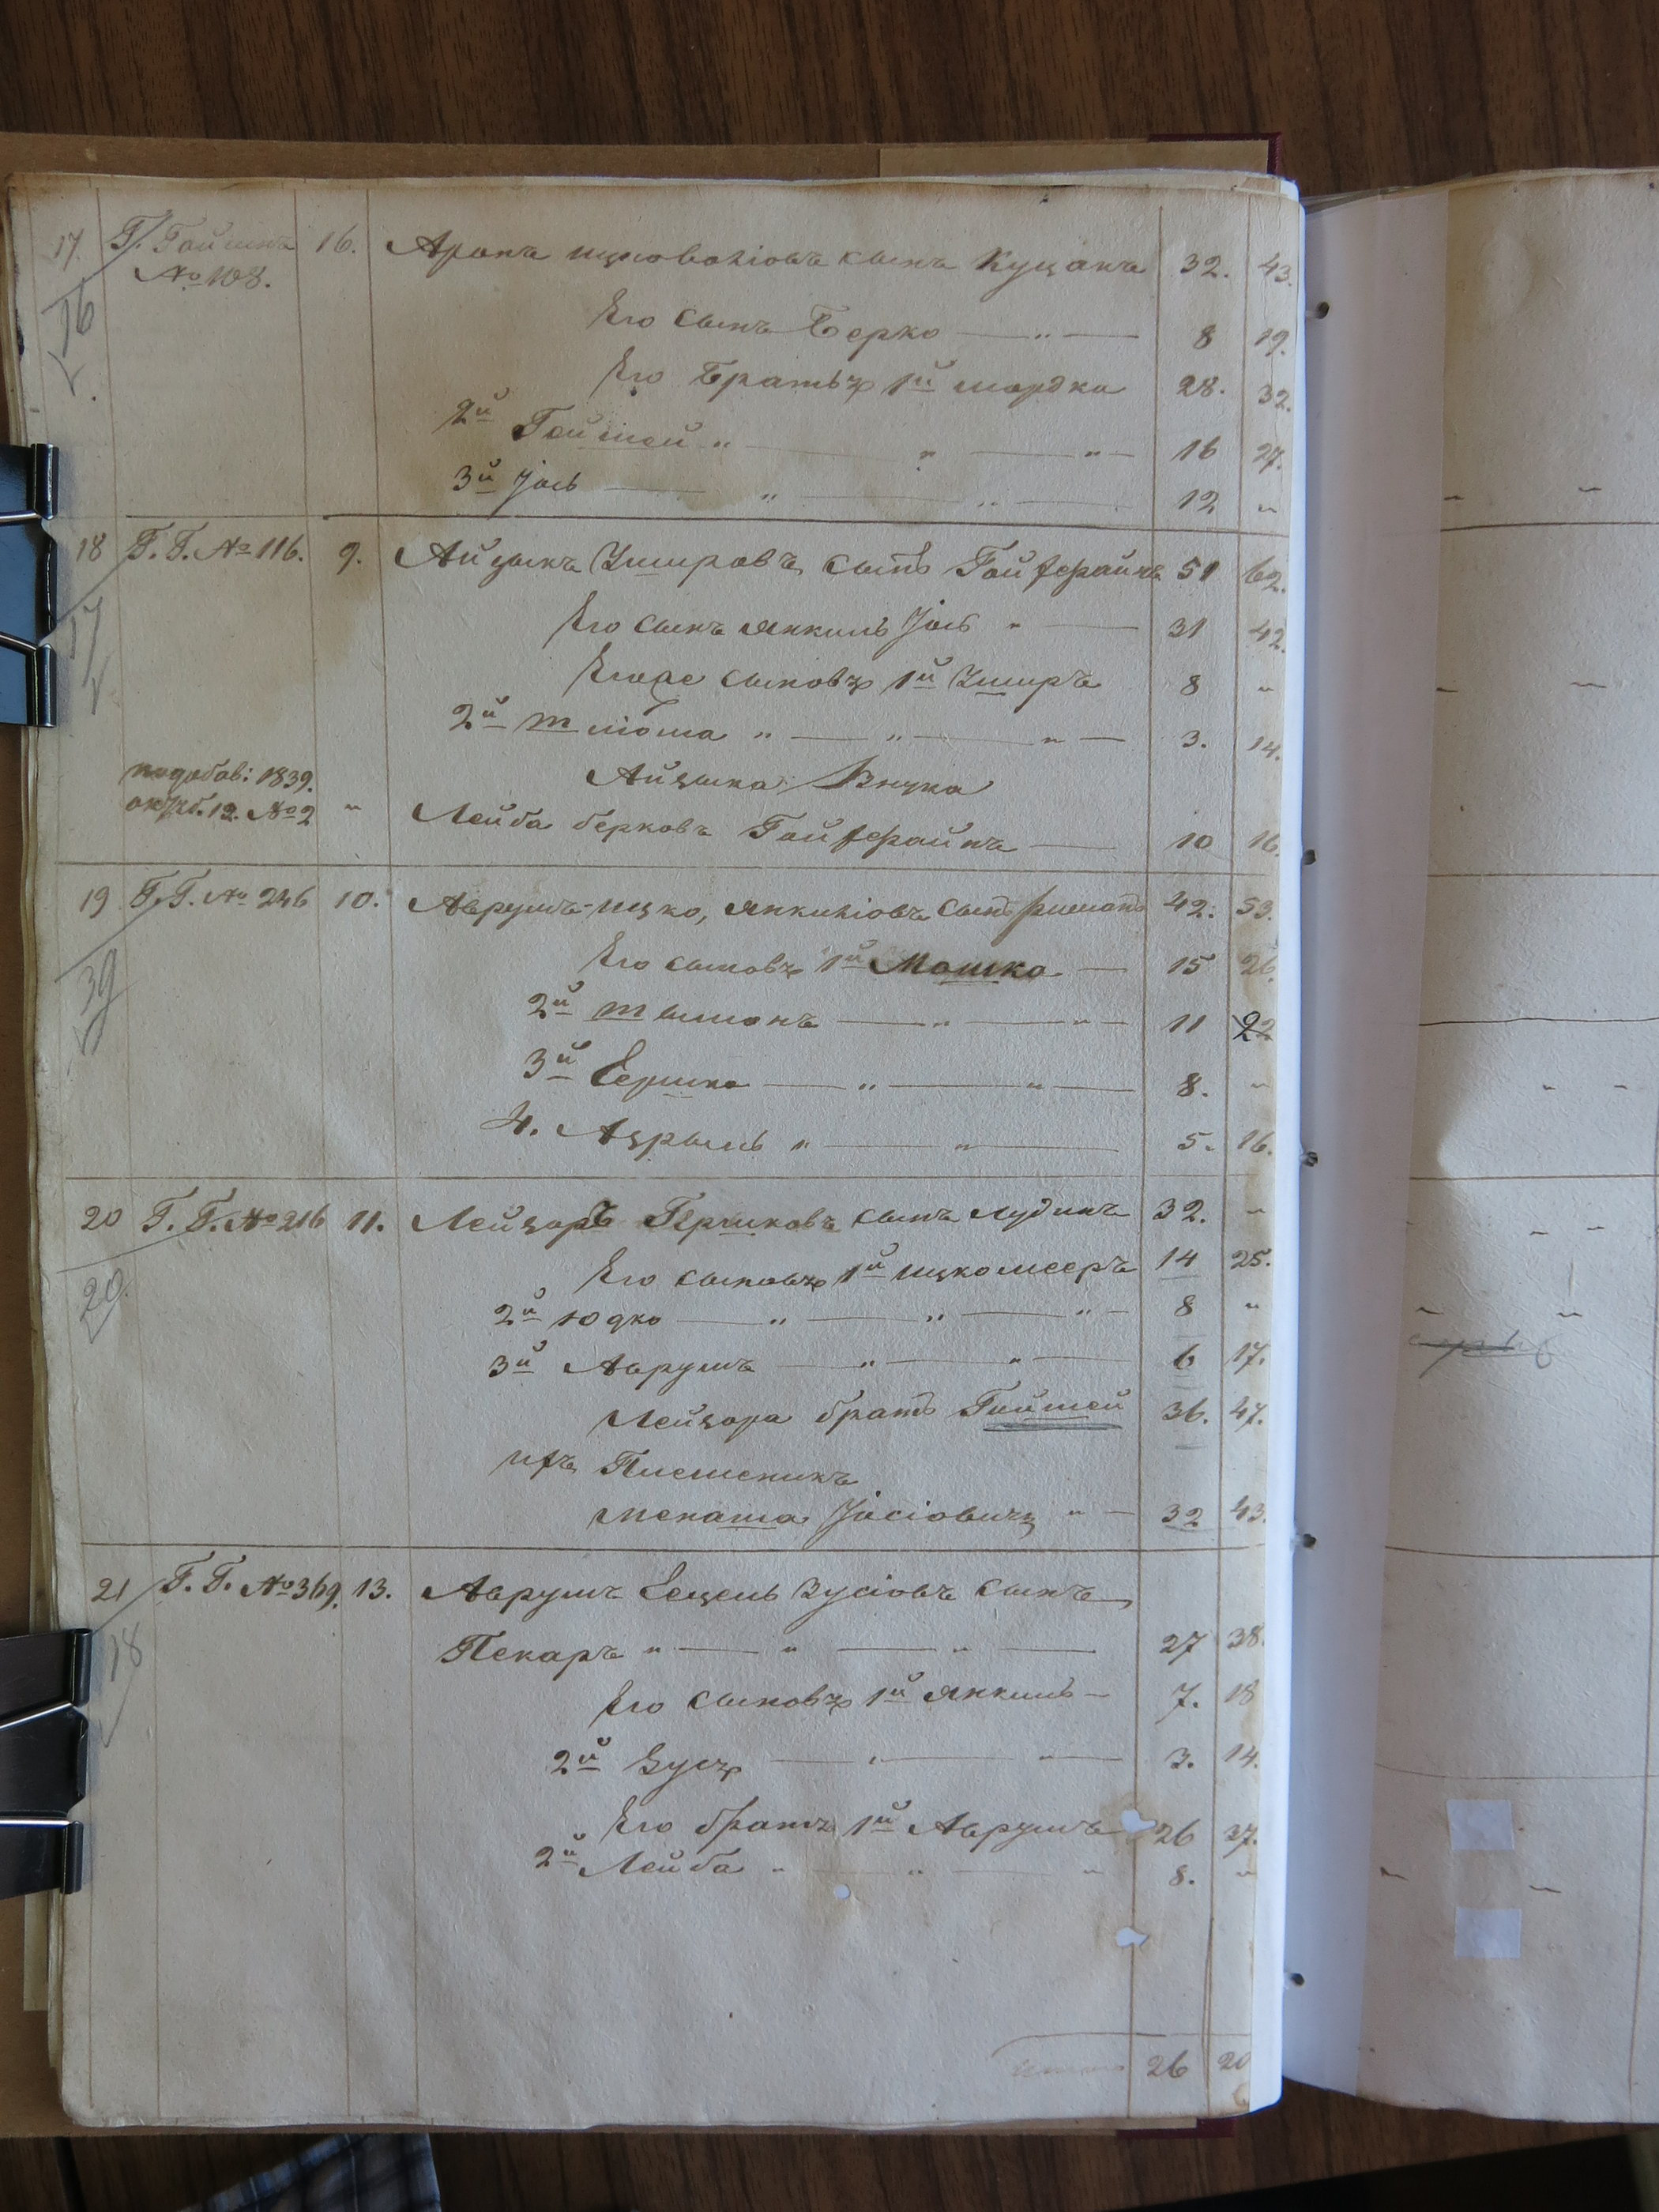 17. Г. Гайшнъ 16. Аронъ Ицковолiовъ сынъ Куцакъ 32. 43.
№ 108.
16
Его Сынъ Берко — „ — 8 19.
Его Братьъ 1й мордка 28. 32.
2й Гойшей „ — „ — „ — 16 27.
3й Iось — „ — „ — 12 „
18 Г. Г. № 116. 9. Айзыкъ Ушировъ Сынъ Гойзефайнъ 51 62.
17
Его сынъ Янкиль Iось „ — 31 42.
Егоже сыновъ 1й Уширъ 8 „
2й Шлiома „ — „ — „ — 3. 14.
Айзыка Внука
подобав: 1839.
октяб. 12. № 2 „ Лейба берковъ Гойзефайнъ — 10 16.
19 Г. Г. № 246 10. Аврумъ-Ицко, Янкилiовъ Сынъ 42. 53.
39
Его сыновъ 1й Мошко — 15 26.
2й — „ — „ — 11 22
3й Гершко — „ — „ — 8. „
4. Азрыль „ — „ — 5. 16.
20 Г. Г. № 216 11. Лейзоръ Гершковъ сынъ Лудинъ 32. „
20.
Его сыновъ 1й Ицкомееръ 14 25.
2й Юдко — „ — „ — „ — 8 „
3й Аврумъ — „ — „ — 6 17.
Лейзора братъ Гойшей 36. 47.
ихъ Племеникъ
Менаша Iосiовичъ „ — 32 43.
21 Г. Г. № 369. 13. Аврумъ Гецель Зусiовъ сынъ
18
Пекаръ „ — „ — „ — 27 38.
Его сыновъ 1й Янкиль — 7. 18
2й Зусъ — „ — „ — 3. 14.
Его братъ 1й Аврумъ 26 37.
2й Лейба „ — „ — „ 8. „
Итого 26 20